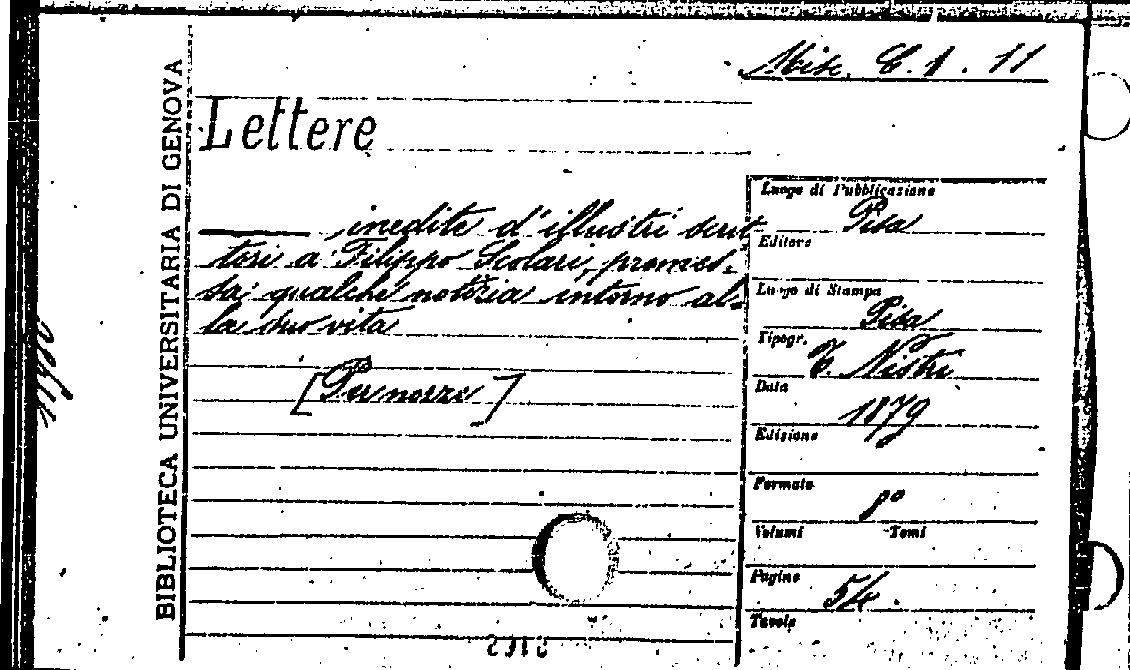 Misc. C. 1. 11
BIBLIOTECA UNIVERSITARIA DI GENOVA
Lettere
——— inedite d'illustri scrit
tori a Filippo Scolari, premes-
sa qualche notizia intorno al-
la sua vita
[Per nozze]
Luogo di Pubblicazione
Pisa
Editore
Luogo di Stampa
Pisa
Tipogr.
T. Nistri
Data
1879
Edizione
Formato
8°
Volumi Tomi
Pagine
54.
Tavole